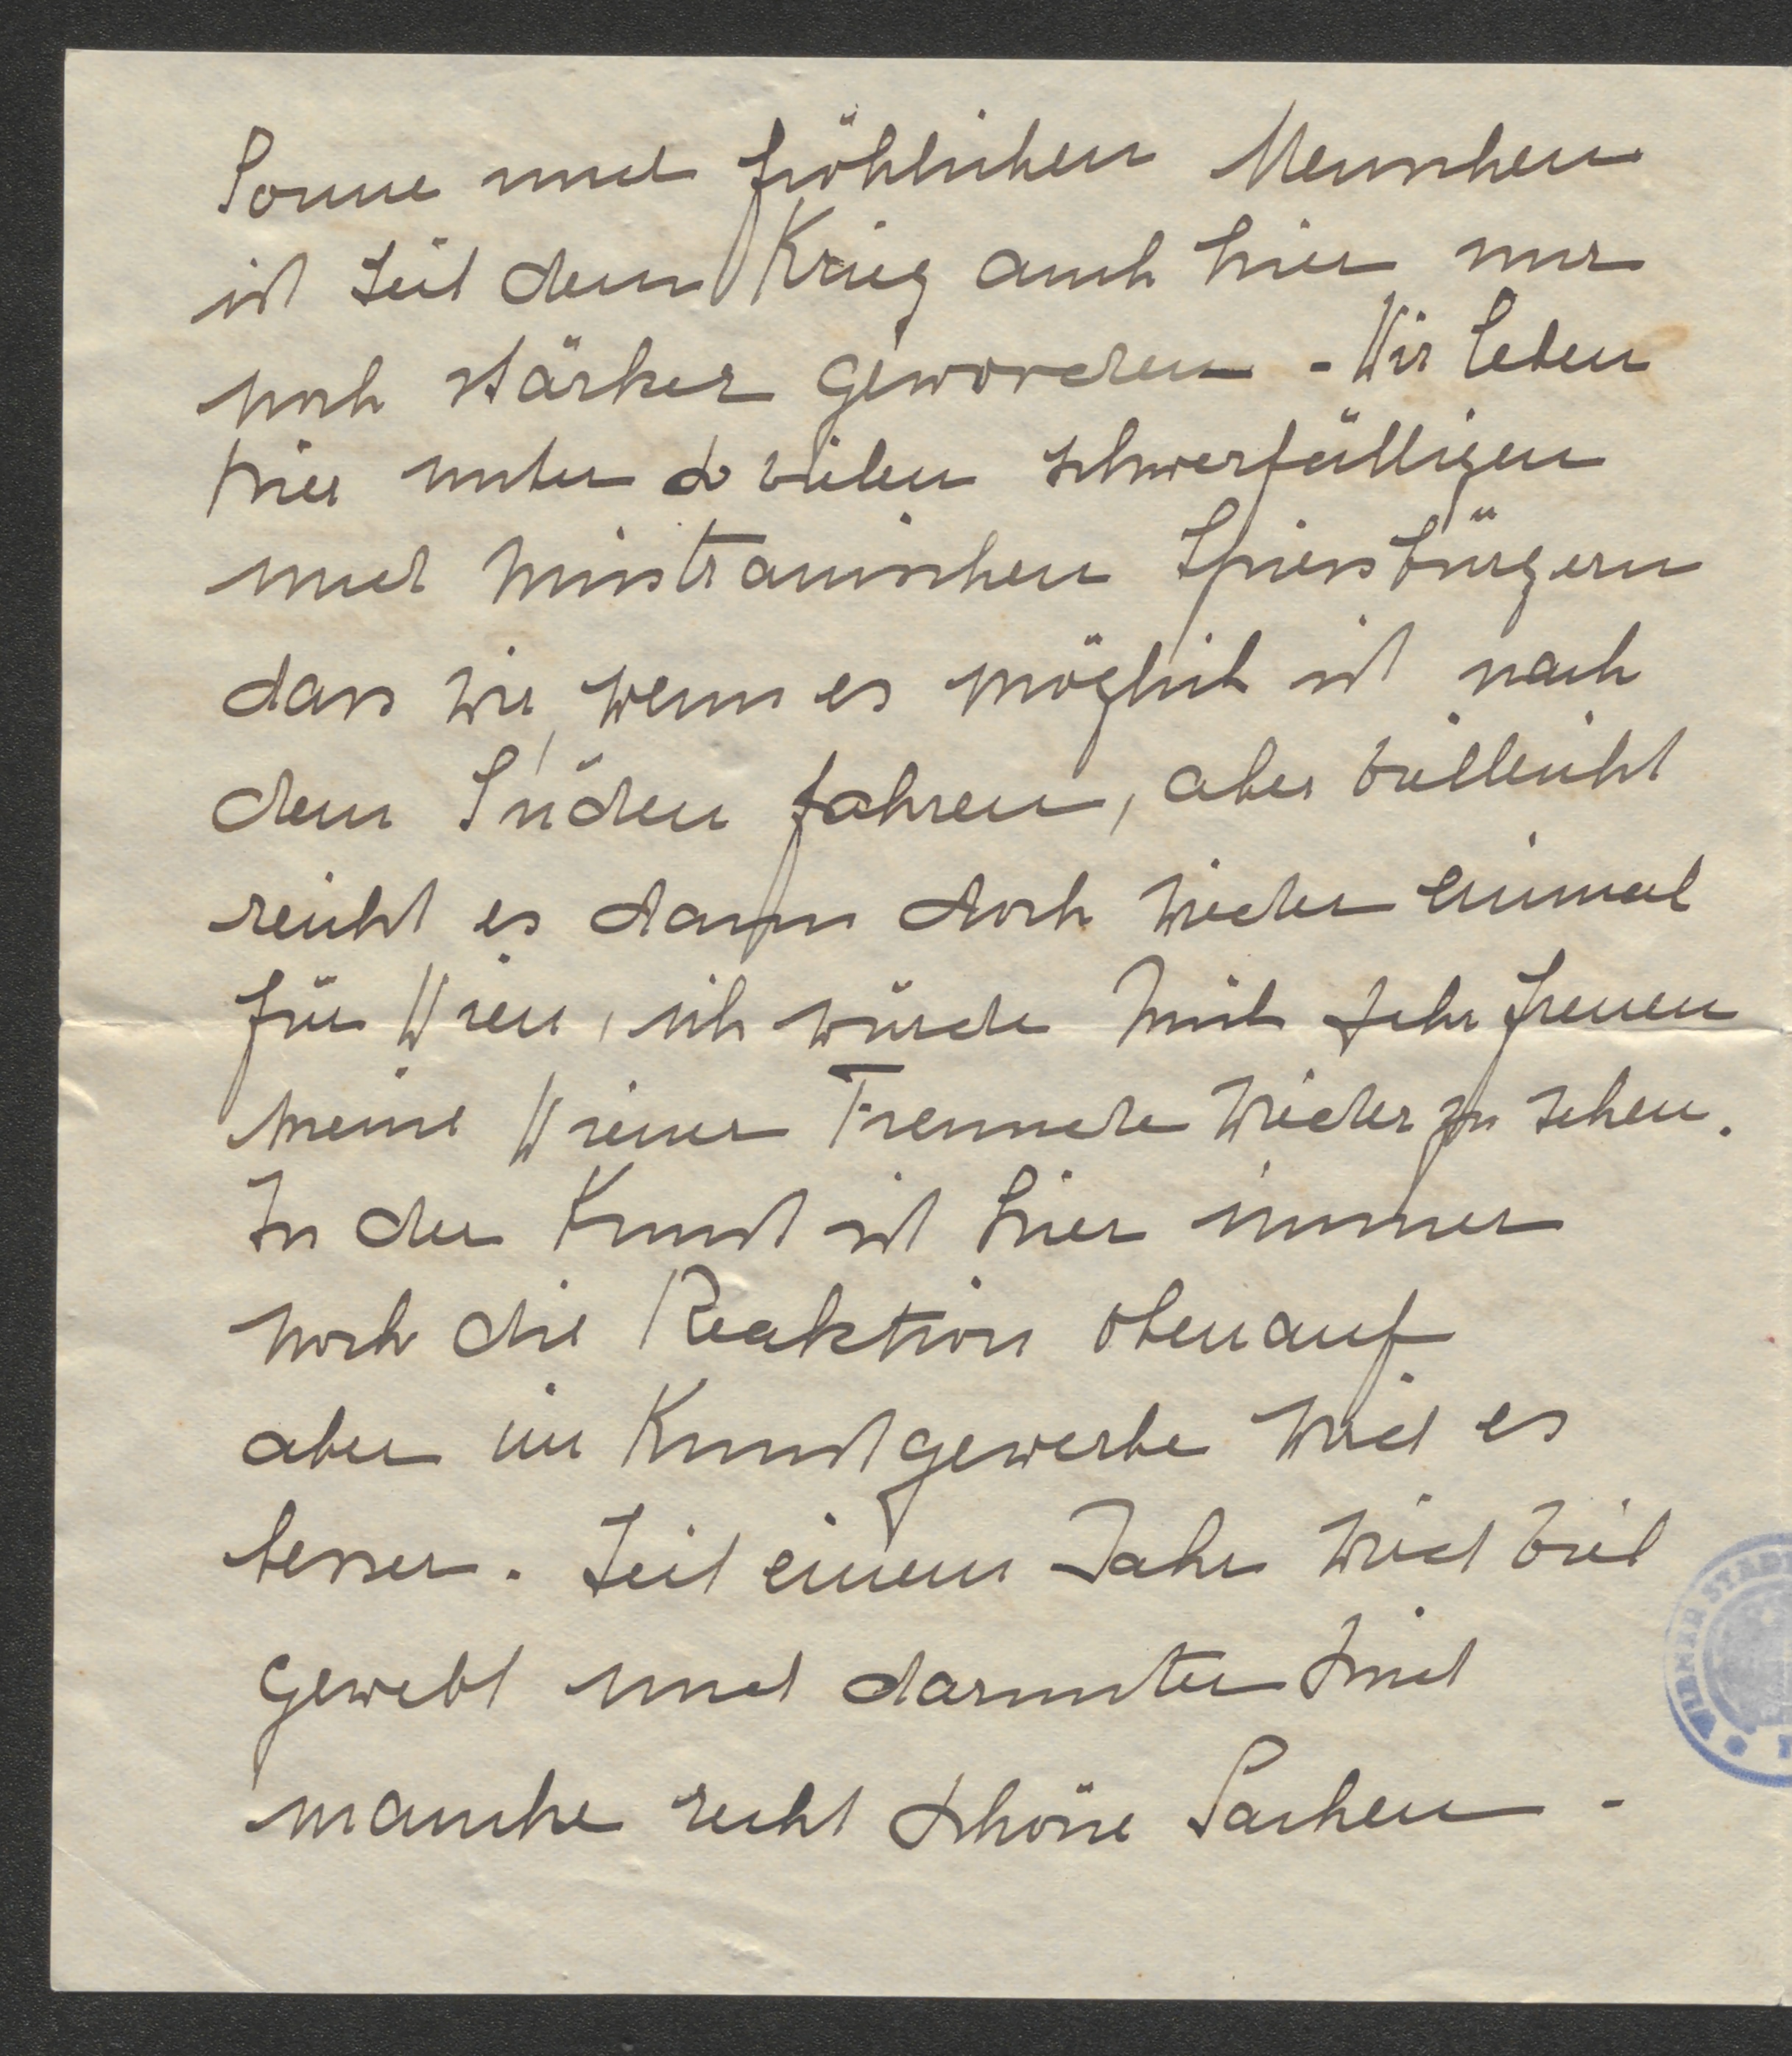 Sonne und fröhlichen Menschen
ist seit dem Krieg auch hier nur
noch stärker geworden - Wir leben
hier unter so vielen schwerfälligen
und misstrauischen Spiessbürgern
dass wir, wenn es möglich ist nach
dem Süden fahren, aber vielleicht
reicht es dann doch wieder einmal
für Wien, ich würde mich sehr freuen
meine Wiener Freunde wieder zu sehen.
In der Kunst ist hier immer
noch die Reaktion obenauf
aber im Kunstgewerbe wird es
besser. Seit einem Jahr wird viel
gewebt und darunter sind
manche recht schöne Sachen -
WIENER STADT